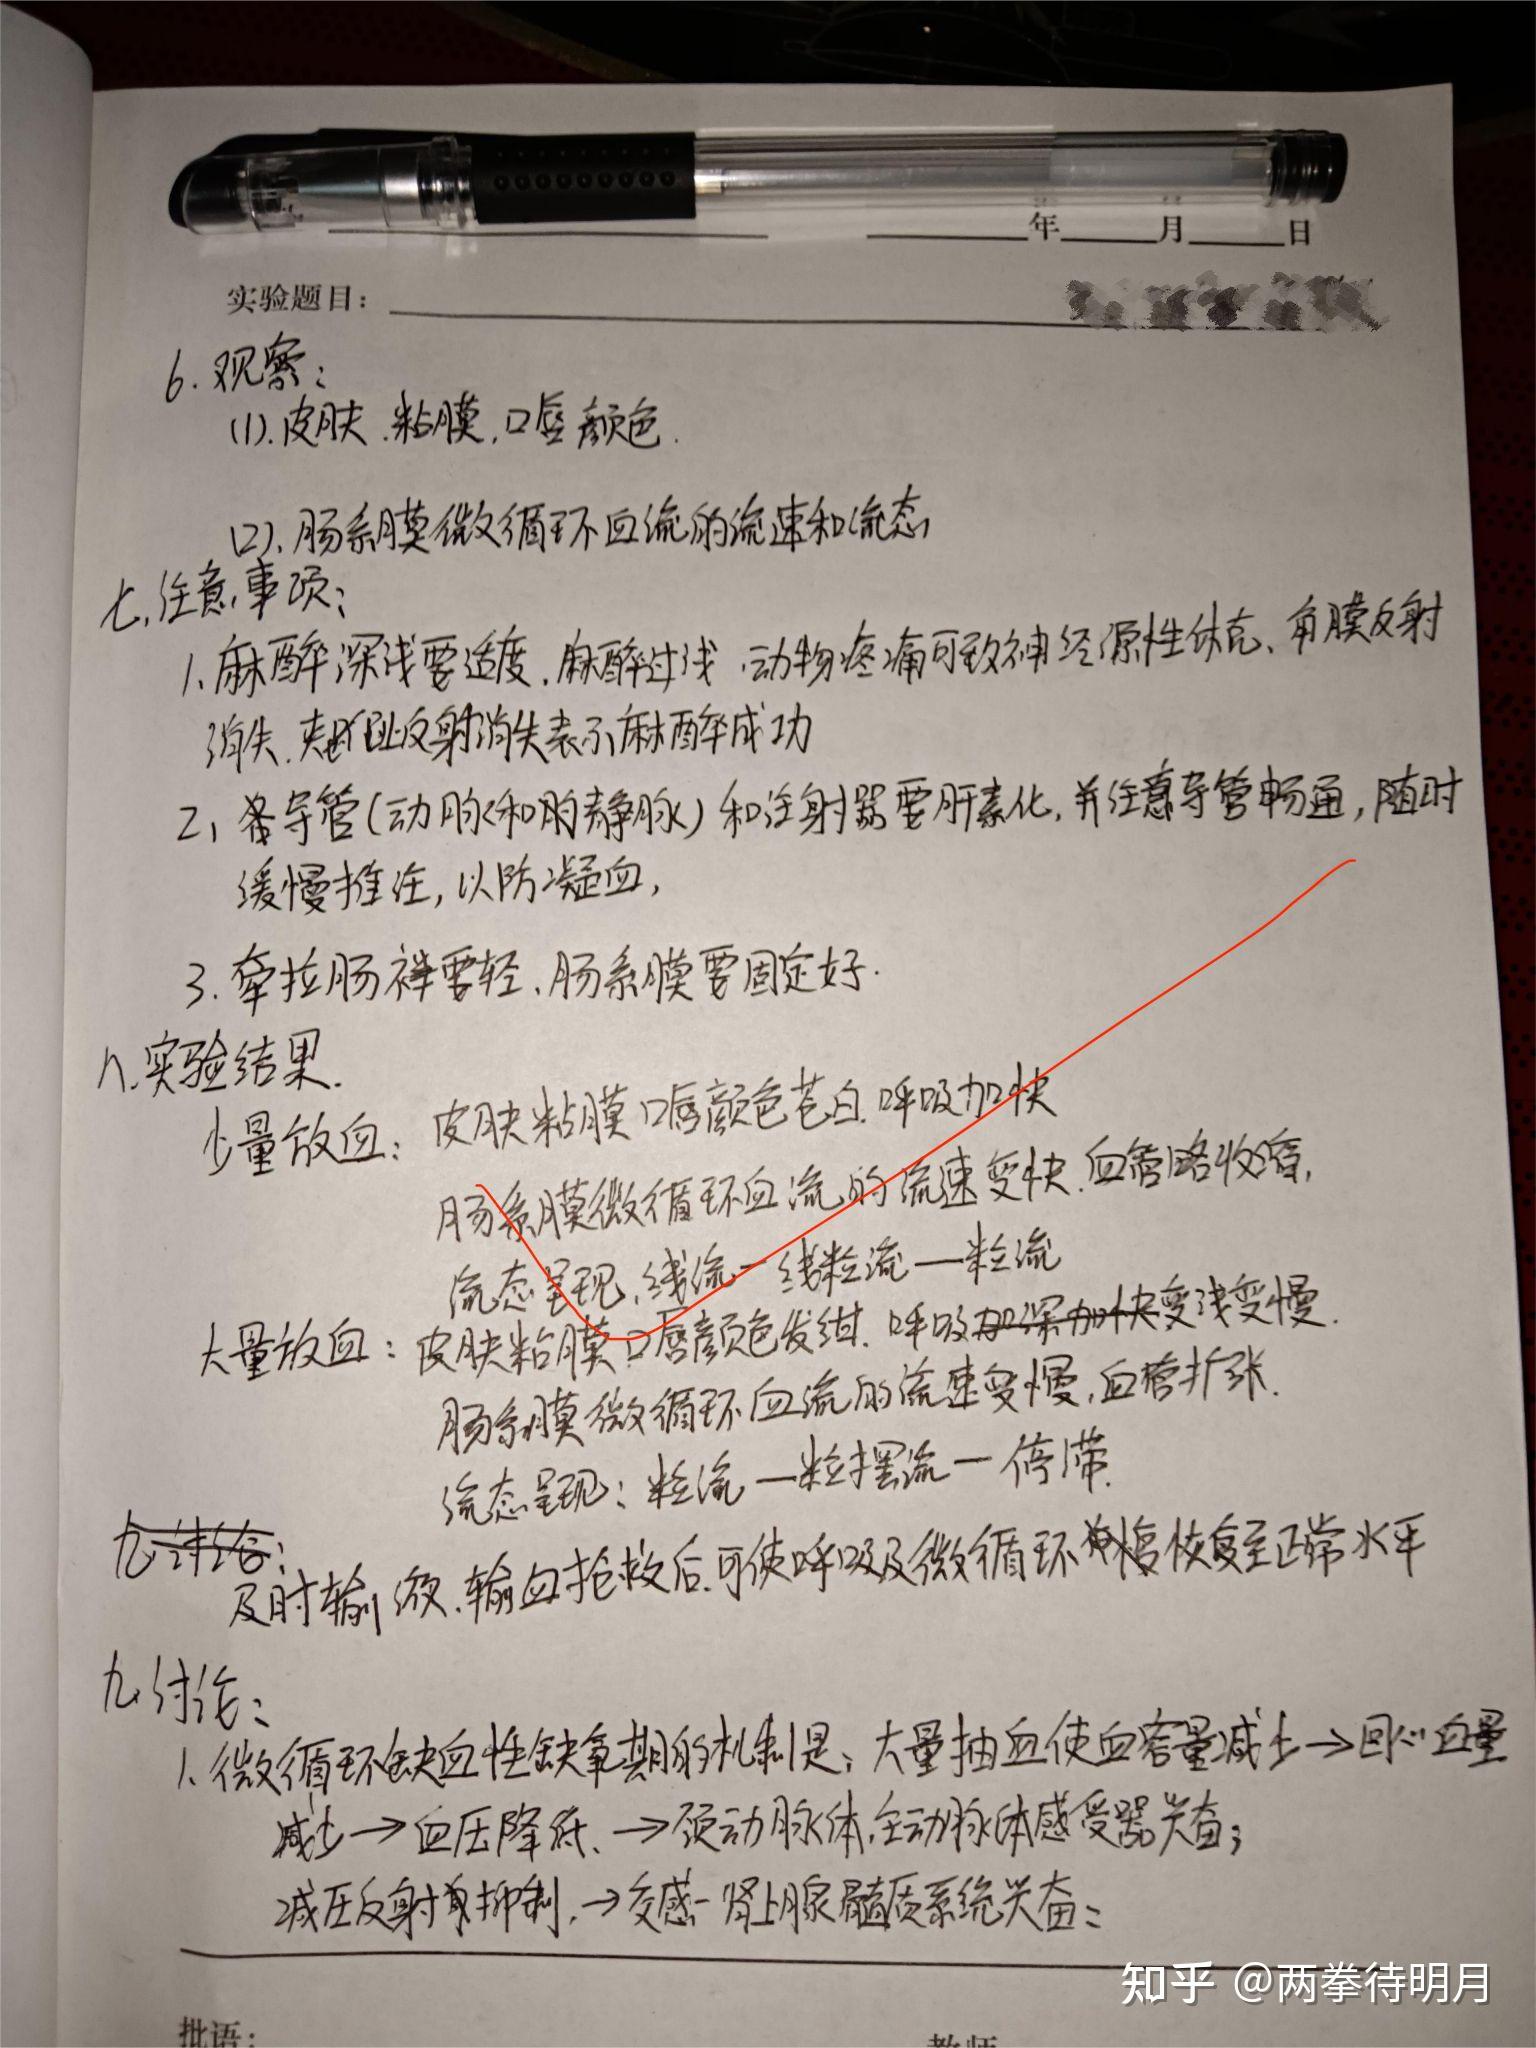 年 月 日
实验题目：
6. 观察：
(1). 皮肤、粘膜，口唇颜色.
(2)、肠系膜微循环血流的流速和流态
七、注意事项：
1、麻醉深浅要适度、麻醉过浅、动物疼痛可致神经源性休克、角膜反射
消失、夹趾反射消失表示麻醉成功
2、各导管(动脉和静脉)和注射器要肝素化，并注意导管畅通，随时
缓慢推注，以防凝血，
3. 牵拉肠袢要轻、肠系膜要固定好.
八.实验结果.
少量放血：皮肤粘膜口唇颜色苍白. 呼吸加快
肠系膜微循环血流的流速变快. 血管略收缩，
流态呈现、线流—线粒流—粒流
大量放血：皮肤粘膜口唇颜色发绀. 呼吸变浅变慢.
肠系膜微循环血流的流速变慢，血管扩张.
流态呈现：粒流—粒摆流—停滞.
九、讨论：
及时输液、输血抢救后，可使呼吸及微循环恢复至正常水平
九、讨论：
1、微循环缺血性缺氧期的机制是：大量抽血使血容量减少→回心血量
减少→血压降低、→颈动脉体，主动脉体感受器兴奋；
减压反射抑制，→交感-肾上腺髓质系统兴奋：
批语： 教师
知乎 @两拳待明月